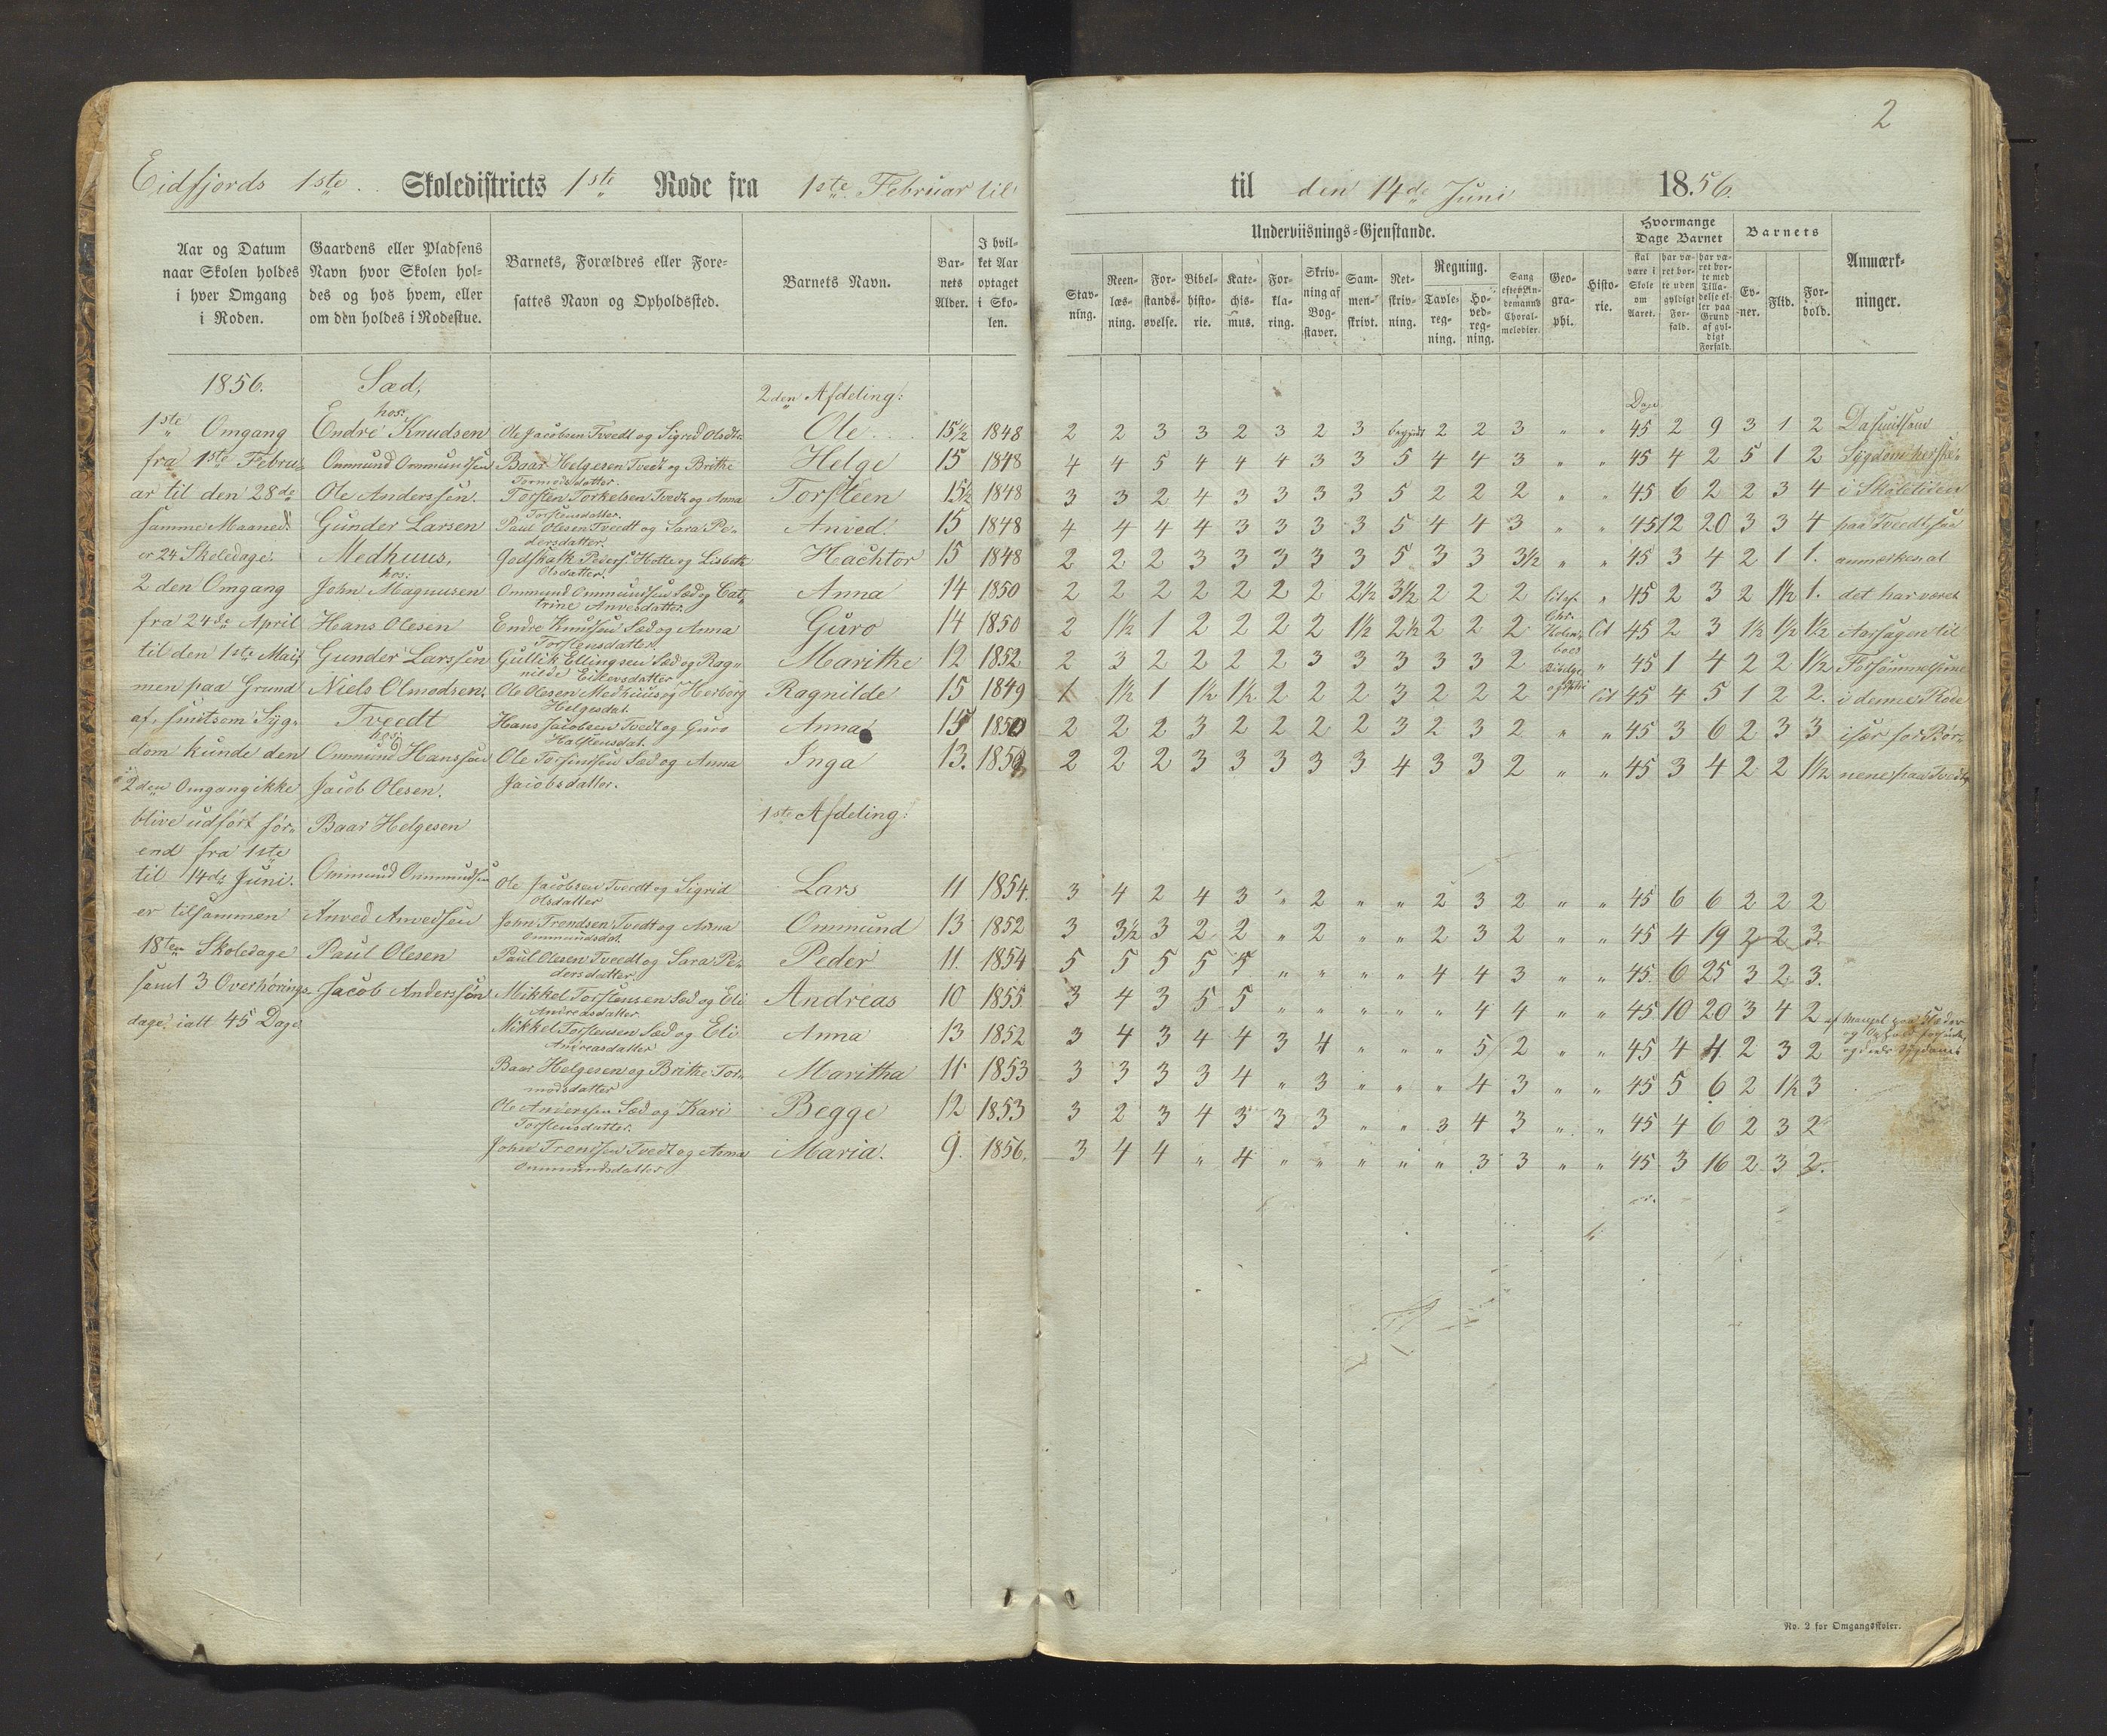 2
Eidfjords 1ste Skoledistricts 1ste Rode fra 1ste Februar til
til den 14de Juni 1856.
Aar og Datum naar Skolen holdes i hver Omgang i Roden.
Gaardens eller Pladsens Navn hvor Skolen holdes og hos hvem, eller om den holdes i Rodestue.
Barnets, Forældres eller Foresattes Navn og Opholdssted.
Barnets Navn.
Barnets Alder.
I hvilket Aar optaget i Skolen.
Underviisnings-Gjenstande.
Stavning.
Reenlæsning.
Forstandsøvelse.
Bibelhistorie.
Katechismus.
Forklaring.
Skrivning af Bogstaver.
Sammenskrivt.
Retskrivning.
Regning.
Tavleregning.
Hovedregning.
Sang efter Lindemanns Choralmelodier.
Geographi.
Historie.
Hvormange Dage Barnet
skal være i Skole om Aaret.
har været borte uden gyldigt Forfald.
har været borte med Tilladelse eller paa Grund af gyldigt Forfald.
Barnets
Evner.
Flid.
Forhold.
Anmærkninger.
1856.
1ste Omgang
fra 1ste Februar
til den 28de
samme Maaned
er 24 Skoledage.
2den Omgang
fra 24de April
til den 1ste Mai,
men paa Grund
af smitsom Sygdom
kunde den
2den Omgang ikke
blive udført førend
fra 1ste
til 14de Juni.
er tilsammen
18ten Skoledage
samt 3 Overhøringsdage,
ialt 45 Dage
Sæd,
hos:
Endre Knudsen
Ommund Ommundsen
Ole Anderssen.
Gunder Larsen
Medhuus,
hos:
John Magnusen
Hans Olesen
Gunder Larssen
Niels Olmodsen.
Tveedt
hos:
Ommund Hanssen
Jacob Olesen.
Baar Helgesen
Ommund Ommundsen
Anved Anvedsen
Paul Olesen
Jacob Anderssøn
2den Afdeling:
Dage
Ole Jacobsen Tveedt og Sigrid Olsdtr. Ole 15½ 1848 2 2 3 3 2 3 2 3 begyndt 2 2 3 " " 45 2 9 3 1 2
Baar Helgesen Tvedt og Brithe Tormodsdatter. Helge 15 1848 4 4 5 4 4 4 3 3 5 4 4 3 " " 45 4 2 5 1 2
Torsten Torkelsen Tvedt og Anna Torstensdatter. Torsteen 15½ 1848 3 3 2 4 3 3 3 3 5 2 2 2 " " 45 6 2 2 3 4
Paul Olesen Tveedt og Sara Pedersdatter. Anved. 15 1848 4 4 4 4 3 3 3 3 5 4 4 3 " " 45 12 20 3 3 4
Godskalk Peders. Hotte og Lisbeth Olsdatter. Hachtor 15 1848 2 2 2 3 3 3 3 3 5 3 3 3½ " " 45 3 4 2 1 1.
Ommund Ommundsen Sæd og Catrine Anvedsdatter. Anna 14 1850 2 2 2 2 2 2 2 2½ 3½ 2 2 2 " 45 2 3 2 1½ 1.
Endre Knudsen Sæd og Anna Torstensdatter. Guro 14 1850 2 1½ 1 2 2 2 2 1½ 2½ 2 2 2 45 2 3 1½ 1½ 1½
Gullik Ellingsen Sæd og Ragnilde Eillevsdatter. Marithe 12 1852 2 3 2 2 2 2 3 3 3 3 3 2 " 45 1 4 2 2 1½
Ole Olesen Medhuus og Herborg Helgesdat. Ragnilde 15 1849 1 1½ 1 1½ 1½ 2 2 2 3 2 2 2 45 4 5 1 2 2.
Hans Jacobsen Tvedt og Guro Halstensdat. Anna 15 1850 2 2 2 3 2 2 2 2 3 2 3 2 " " 45 3 6 2 3 3
Ole Torfindsen Sæd og Anna Jacobsdatter. Inga 13. 1852 2 2 2 3 3 3 3 3 4 3 3 2 " " 45 3 4 2 2 1½
1ste Afdeling:
Ole Jacobsen Tveedt og Sigrid Olsdatter Lars 11 1854. 3 4 2 4 3 " 2 " " 2 3 2 " " 45 6 6 2 2 2
John Trondsen Tvedt og Anna Ommundsdat. Ommund 13 1852 3 3½ 3 2 2 " 2 " " 2 3 2 " " 45 4 19 2 2 3.
Paul Olesen Tveedt og Sara Pedersdatter Peder 11. 1854 5 5 5 5 5 " " " " 4 4 3 " " 45. 6 25 3 2 3.
Mikkel Torstensen Sæd og Eli Andreasdatter Andreas 10 1855 3 4 3 5 5 " " " " " 4 4 " " 45 10 20 3 4 2
Mikkel Torstensen Sæd og Eli Andreasdatter Anna 13 1852 3 4 3 4 4 3 4 " " " 5 2 " " 45 4 4 2 3 2
Baar Helgesen og Brithe Tormodsdatter Maritha 11 1853 3 3 3 3 4 " 3 " " " 4 3 " " 45 5 6 2 1½ 3
Ole Anderssen Sæd og Kari Torstensdatter. Begge 12 1853 3 2 3 4 3 3 3 " " 3 4 3 " " 45 4 6 2 3 2
John Trondsen Tvedt og Anna Ommundsdatter Maria. 9. 1856. 3 4 4 " 4 " " " " " 3 3 " " 45 3 16 2 3 2.
Da smitsom
Sygdom
i Skoletiden
paa Tveedt, saa
anmærkes at
det har været
Aarsagen til
Forsømmelserne
i denne Rode
især for Børnene
paa Tvedt,
af Mangel paa Klæder
No. 2 for Omgangsskoler.